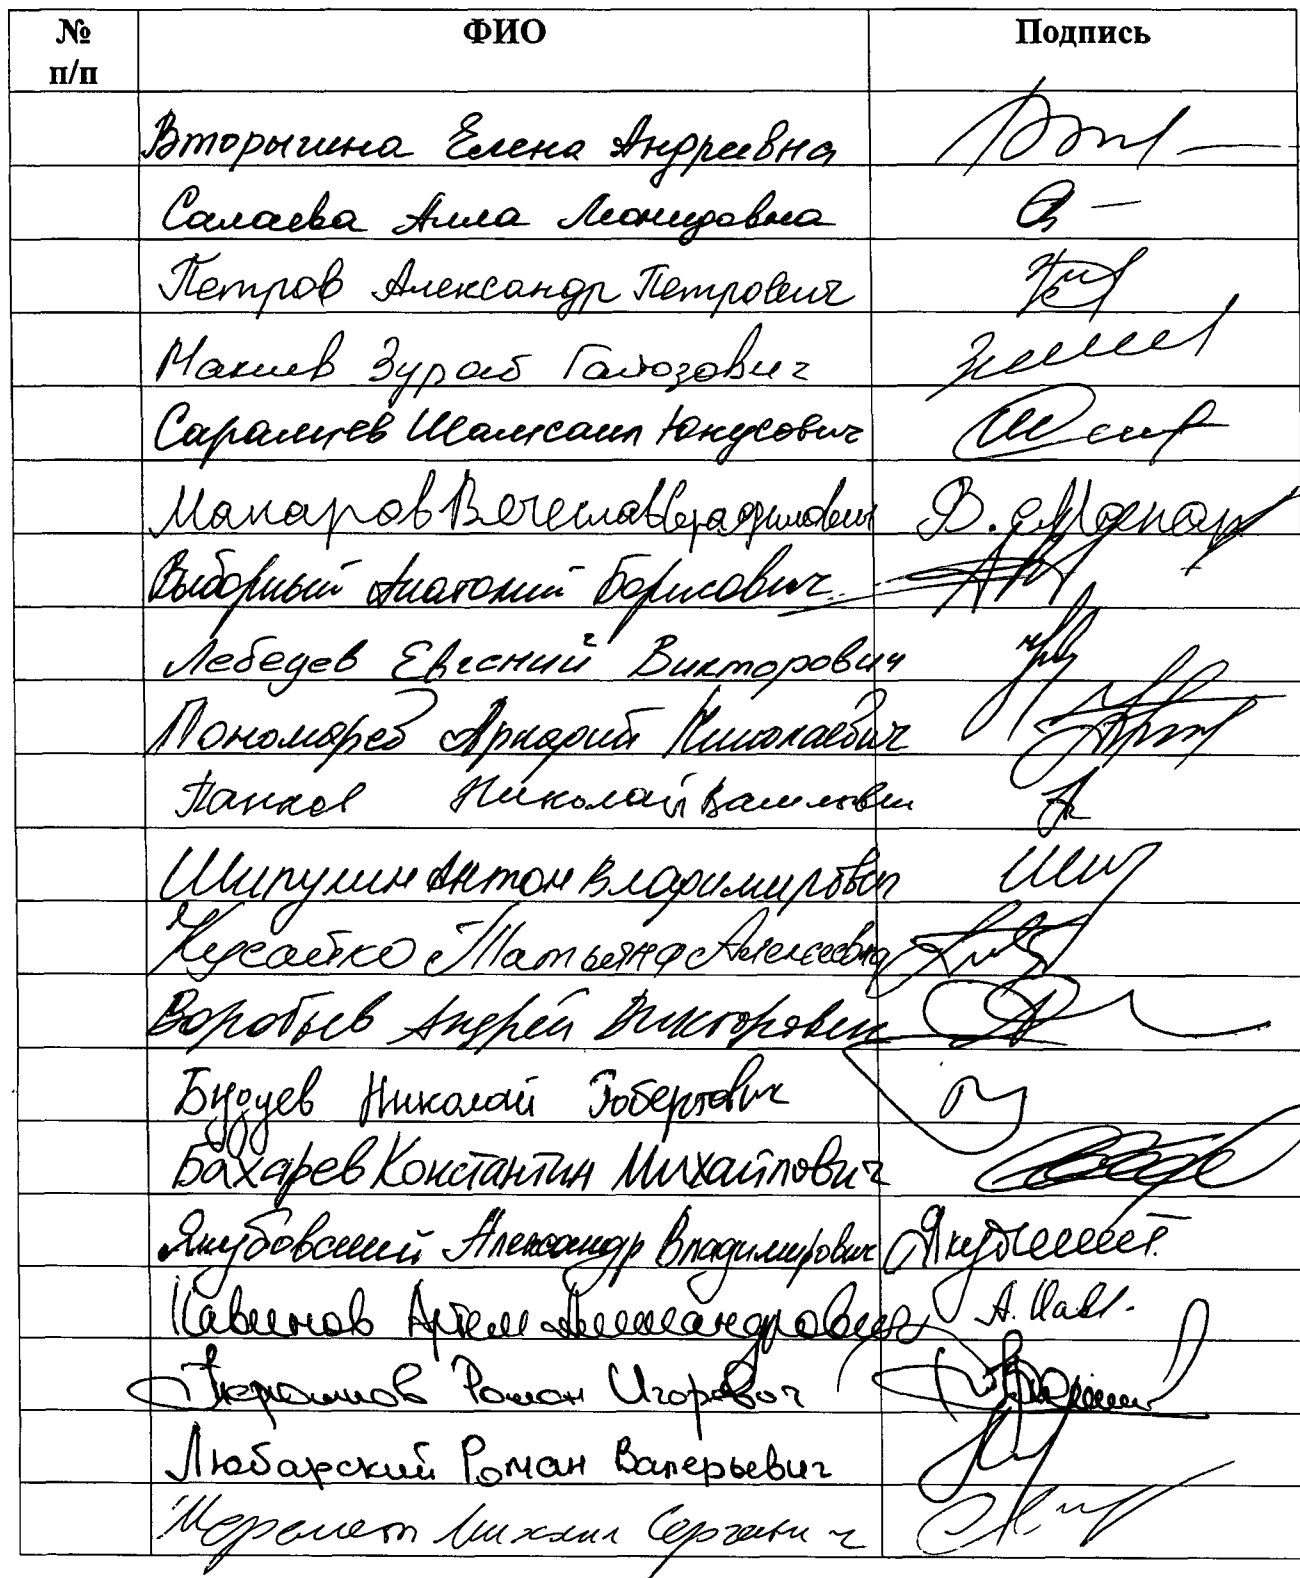 № п/п ФИО Подпись
Вторыгина Елена Андреевна
Салаева Алла Леонидовна
Петров Александр Петрович
Макиев Зураб Гайозович
Саралиев Шамсаил Юнусович
Макаров Вячеслав Серафимович В. Макар
Выборный Анатолий Борисович
Лебедев Евгений Викторович
Пономарев Аркадий Николаевич
Панков Николай Васильевич
Шипулин Антон Владимирович
Кусайко Татьяна Алексеевна
Воробьев Андрей Викторович
Будуев Николай Робертович
Бахарев Константин Михайлович
Якубовский Александр Владимирович
Кавинов Артём Александрович А. Кав.
Роман Игоревич
Любарский Роман Валерьевич
Шеремет Михаил Сергеевич